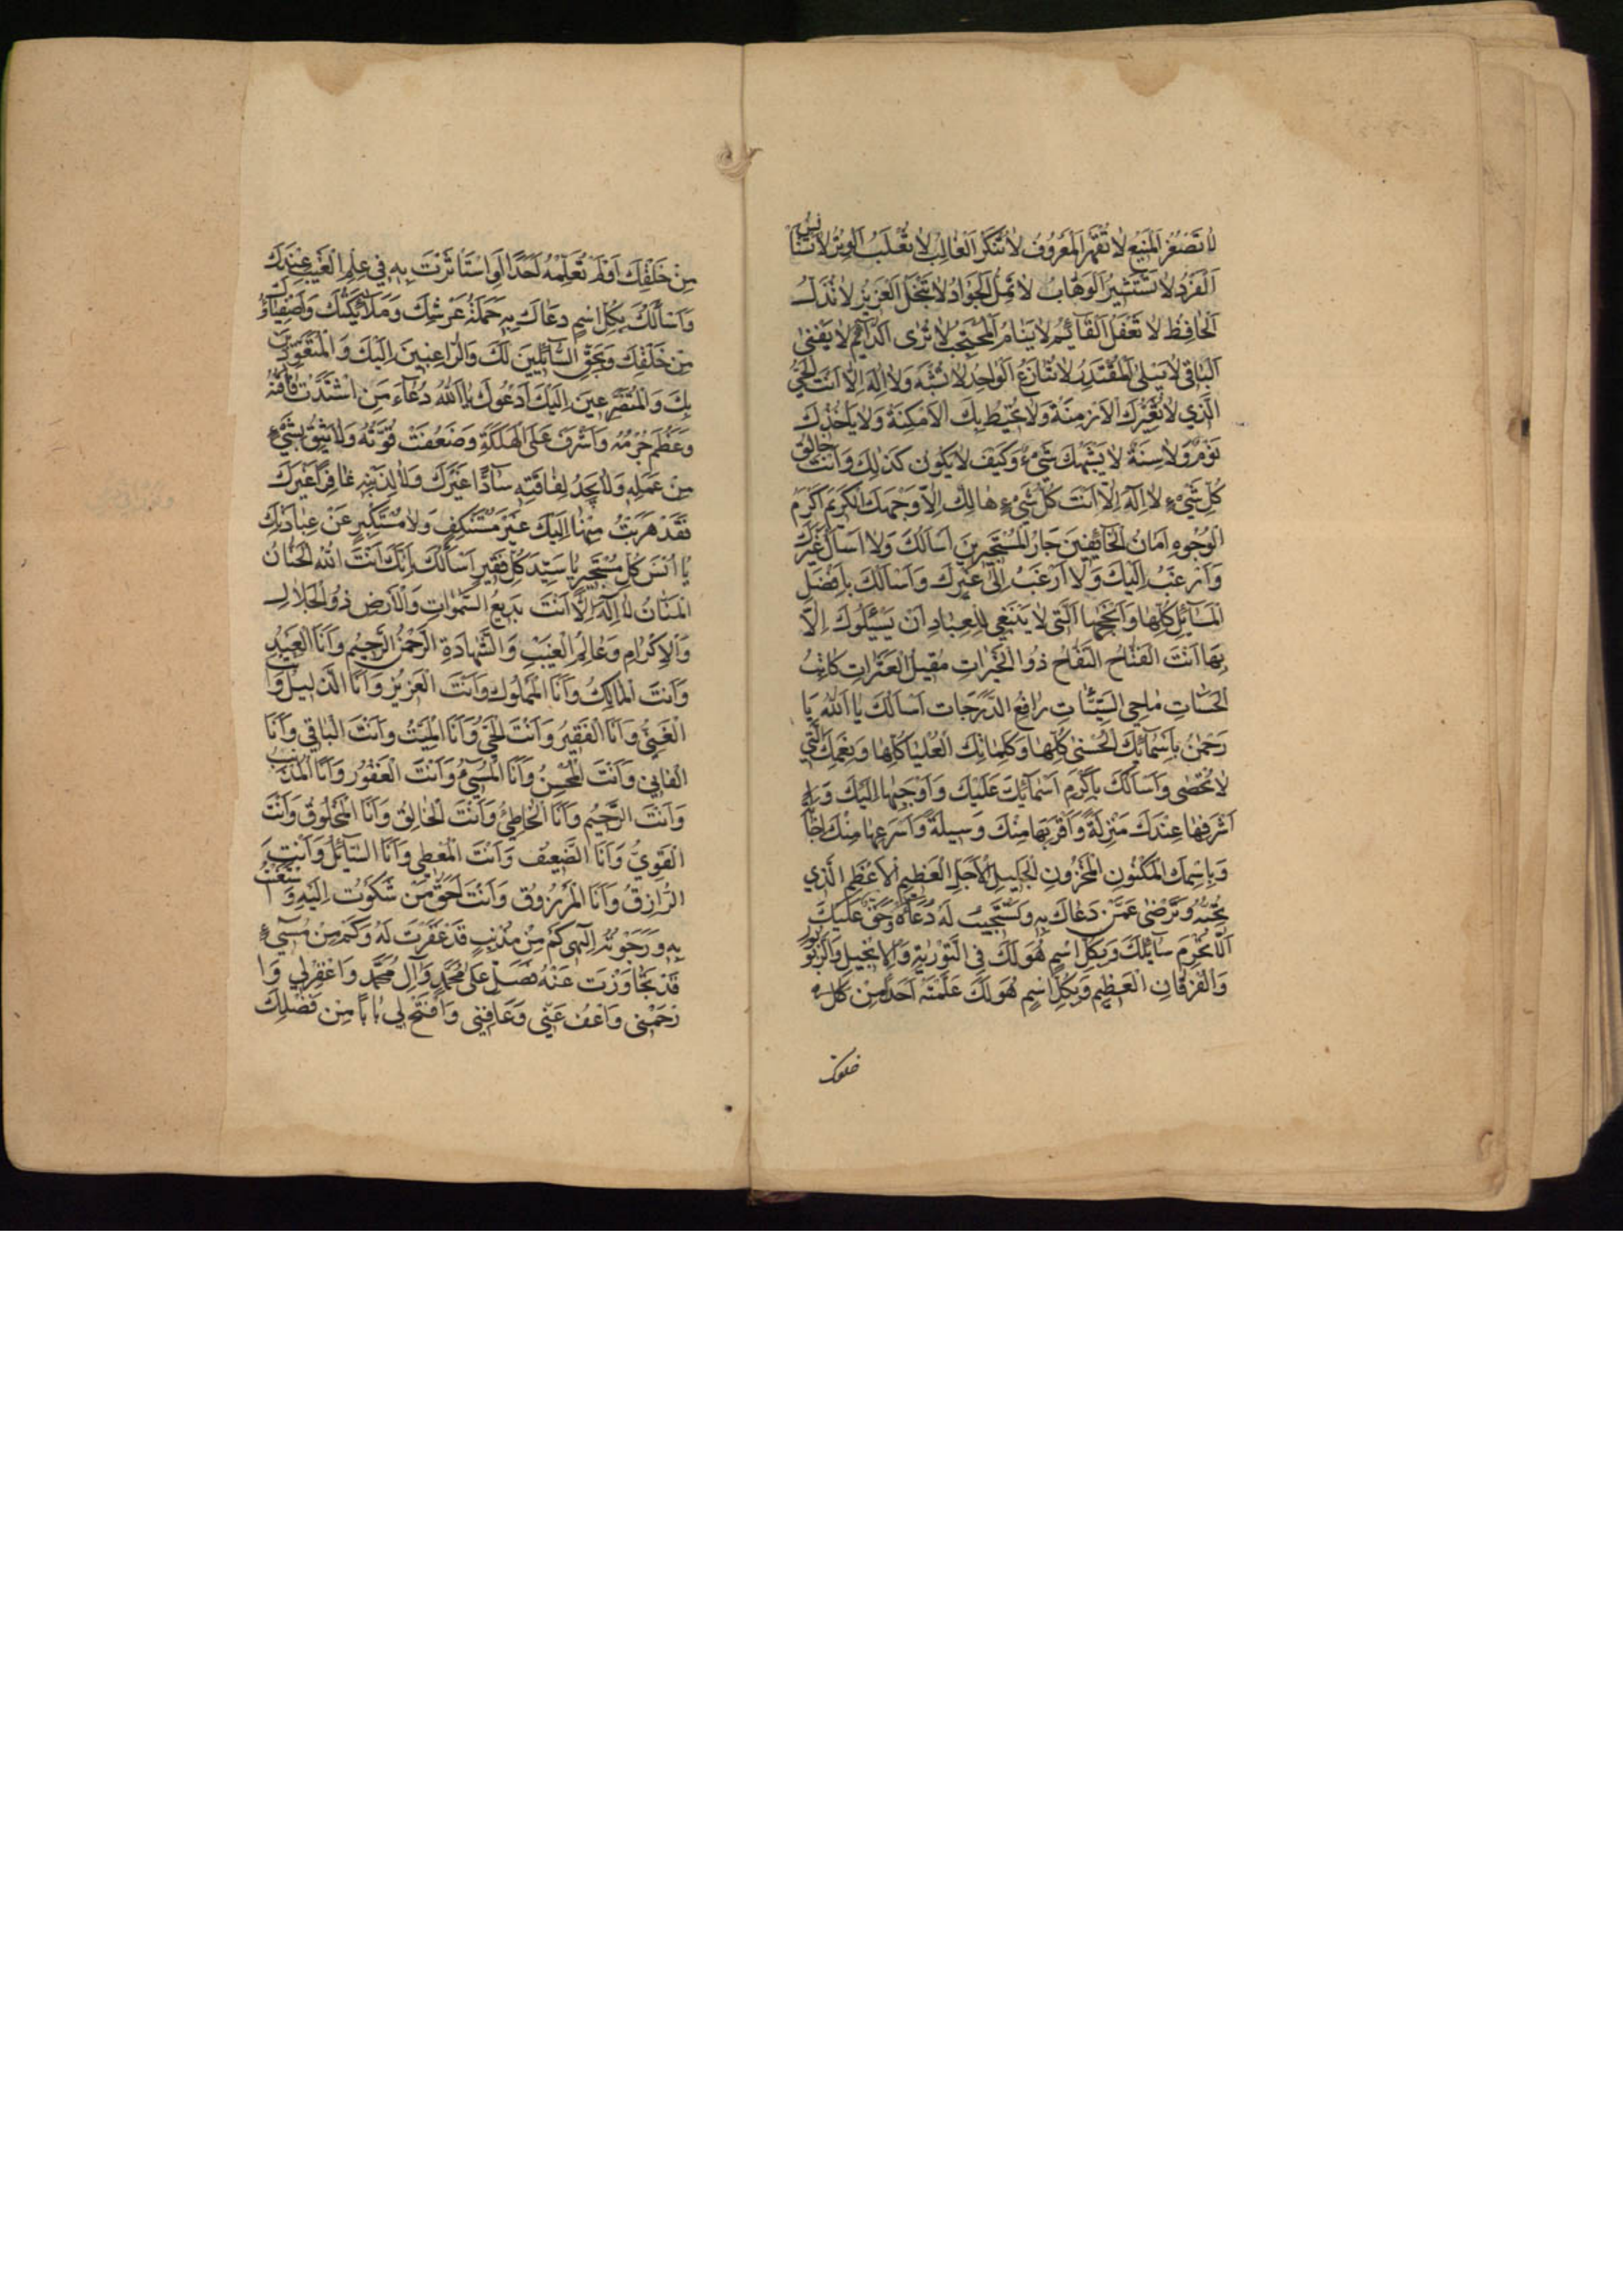 لٰا تَصْغُرُ اَلْمَنِيعُ لٰا تُقْهَرُ اَلْمَعْرُوفُ لٰا تُنْكَرُ اَلْغٰالِبُ لٰا تُغْلَبُ اَلْوِتْرُ لٰا تَسْتَأْنِسُ
اَلْفَرْدُ لٰا تَسْتَشِيرُ اَلْوَهّٰابُ لٰا تَمَلُّ اَلْجَوٰادُ لٰا تَبْخَلُ اَلْعَزِيزُ لٰا تُذَلُّ
اَلْحٰافِظُ لٰا تَغْفُلُ اَلْقٰآئِمُ لٰا يَنٰامُ اَلْمُحْتَجِبُ لٰا تُرٰى اَلدّٰآئِمُ لٰا يَفْنٰى
اَلْبٰاقِي لٰا يَبْلٰى اَلْمُقْتَدِرُ لٰا تُنٰازَعُ اَلْوٰاحِدُ لٰا تُشَبَّهُ وَلٰا اِلٰهَ اِلّٰا اَنْتَ الْحَقُّ
الَّذِي لٰا تُغَيِّرُكَ الْاَزْمِنَةُ وَلٰا تُحِيطُ بِكَ الْاَمْكِنَةُ وَلٰا يَأْخُذُكَ
نَوْمٌ وَلٰا سِنَةٌ لٰا يَشْبَهُكَ شَيْءٌ وَكَيْفَ لٰا يَكُونُ كَذٰلِكَ وَاَنْتَ خٰالِقُ
كُلِّ شَيْءٍ لٰا اِلٰهَ اِلّٰا اَنْتَ كُلُّ شَيْءٍ هٰالِكٌ اِلّٰا وَجْهَكَ الْكَرِيمَ اَكْرَمُ
الْوُجُوهِ اَمٰانُ الْخٰآئِفِينَ جٰارُ الْمُسْتَجِيرِينَ اَسْاَلُكَ وَلٰا اَسْاَلُ غَيْرَكَ
وَاَرْغَبُ اِلَيْكَ وَلٰا اَرْغَبُ اِلٰى غَيْرِكَ وَاَسْاَلُكَ بِاَفْضَلِ
الْمَسٰآئِلِ كُلِّهٰا وَاَنْجَحِهٰا اَلَّتِي لٰا يَنْبَغِي لِلْعِبٰادِ اَنْ يَسْئَلُوكَ اِلّٰا
بِهٰا اَنْتَ الْفَتّٰاحُ النَّفّٰاحُ ذُو الْخَيْرٰاتِ مُقِيلُ الْعَثَرٰاتِ كٰاتِبُ
الْحَسَنٰاتِ مٰاحِي السَّيِّئٰاتِ رٰافِعُ الدَّرَجٰاتِ اَسْاَلُكَ يٰا اَللّٰهُ يٰا
رَحْمٰنُ بِاَسْمٰآئِكَ الْحُسْنٰى كُلِّهٰا وَكَلِمٰاتِكَ الْعُلْيٰا كُلِّهٰا وَنِعَمِكَ الَّتِي
لٰا تُحْصٰى وَاَسْاَلُكَ بِاَكْرَمِ اَسْمٰآئِكَ عَلَيْكَ وَاَحَبِّهٰا اِلَيْكَ وَ
اَشْرَفِهٰا عِنْدَكَ مَنْزِلَةً وَاَقْرَبِهٰا مِنْكَ وَسِيلَةً وَاَسْرَعِهٰا مِنْكَ اِجٰابَةً
وَبِاسْمِكَ الْمَكْنُونِ الْمَخْزُونِ الْجَلِيلِ الْاَجَلِّ الْعَظِيمِ الْاَعْظَمِ الَّذِي
تُحِبُّهُ وَتَرْضٰى عَمَّنْ دَعٰاكَ بِهِ وَتَسْتَجِيبُ لَهُ دُعٰآءَهُ وَحَقٌّ عَلَيْكَ
اَلّٰا تَحْرِمَ سٰآئِلَكَ وَبِكُلِّ اسْمٍ هُوَ لَكَ فِي التَّوْرٰيةِ وَالْاِنْجِيلِ وَالزَّبُورِ
وَالْفُرْقٰانِ الْعَظِيمِ وَبِكُلِّ اسْمٍ هُوَ لَكَ عَلَّمْتَهُ اَحَدًا مِنْ
خلقک
مِنْ خَلْقِكَ اَوْ لَمْ تُعَلِّمْهُ اَحَدًا اَوِ اسْتَأْثَرْتَ بِهِ فِي عِلْمِ الْغَيْبِ عِنْدَكَ
وَاَسْاَلُكَ بِكُلِّ اسْمٍ دَعٰاكَ بِهِ حَمَلَةُ عَرْشِكَ وَمَلٰآئِكَتُكَ وَاَصْفِيٰآؤُكَ
مِنْ خَلْقِكَ وَبِحَقِّ السّٰآئِلِينَ لَكَ وَالرّٰاغِبِينَ اِلَيْكَ وَالْمُتَعَوِّذِينَ
بِكَ وَالْمُتَضَرِّعِينَ اِلَيْكَ اَدْعُوكَ يٰا اَللّٰهُ دُعٰآءَ مَنِ اشْتَدَّتْ فٰاقَتُهُ
وَعَظُمَ جُرْمُهُ وَاَشْرَفَ عَلَى الْهَلَكَةِ وَضَعُفَتْ قُوَّتُهُ وَلٰا يَثِقُ بِشَيْءٍ
مِنْ عَمَلِهِ وَلٰا يَجِدُ لِفٰاقَتِهِ سٰآدًّا غَيْرَكَ وَلٰا لِذَنْبِهِ غٰافِرًا غَيْرَكَ
فَقَدْ هَرَبْتُ مِنْهٰا اِلَيْكَ غَيْرَ مُسْتَنْكِفٍ وَلٰا مُسْتَكْبِرٍ عَنْ عِبٰادَتِكَ
يٰا اُنْسَ كُلِّ مُسْتَجِيرٍ يٰا سَيِّدَ كُلِّ فَقِيرٍ اَسْاَلُكَ بِاَنَّكَ اَنْتَ اللّٰهُ الْحَنّٰانُ
الْمَنّٰانُ لٰا اِلٰهَ اِلّٰا اَنْتَ بَدِيعُ السَّمٰوٰاتِ وَالْاَرْضِ ذُو الْجَلٰالِ
وَالْاِكْرٰامِ وَعٰالِمُ الْغَيْبِ وَالشَّهٰادَةِ الرَّحْمٰنُ الرَّحِيمُ وَاَنَا الْعَبْدُ
وَاَنْتَ الْمٰالِكُ وَاَنَا الْمَمْلُوكُ وَاَنْتَ الْعَزِيزُ وَاَنَا الذَّلِيلُ وَاَنْتَ
الْغَنِيُّ وَاَنَا الْفَقِيرُ وَاَنْتَ الْحَيُّ وَاَنَا الْمَيِّتُ وَاَنْتَ الْبٰاقِي وَاَنَا
الْفٰانِي وَاَنْتَ الْمُحْسِنُ وَاَنَا الْمُسِيءُ وَاَنْتَ الْغَفُورُ وَاَنَا الْمُذْنِبُ
وَاَنْتَ الرَّحِيمُ وَاَنَا الْخٰاطِئُ وَاَنْتَ الْخٰالِقُ وَاَنَا الْمَخْلُوقُ وَاَنْتَ
الْقَوِيُّ وَاَنَا الضَّعِيفُ وَاَنْتَ الْمُعْطِي وَاَنَا السّٰآئِلُ وَاَنْتَ
الرّٰازِقُ وَاَنَا الْمَرْزُوقُ وَاَنْتَ اَحَقُّ مَنْ شَكَوْتُ اِلَيْهِ وَاسْتَغَثْتُ
بِهِ وَرَجَوْتُهُ اِلٰهِي كَمْ مِنْ مُذْنِبٍ قَدْ غَفَرْتَ لَهُ وَكَمْ مِنْ مُسِيءٍ
قَدْ تَجٰاوَزْتَ عَنْهُ فَصَلِّ عَلٰى مُحَمَّدٍ وَآلِ مُحَمَّدٍ وَاغْفِرْ لِي وَا
رْحَمْنِي وَاعْفُ عَنِّي وَعٰافِنِي وَافْتَحْ لِي بٰابًا مِنْ فَضْلِكَ